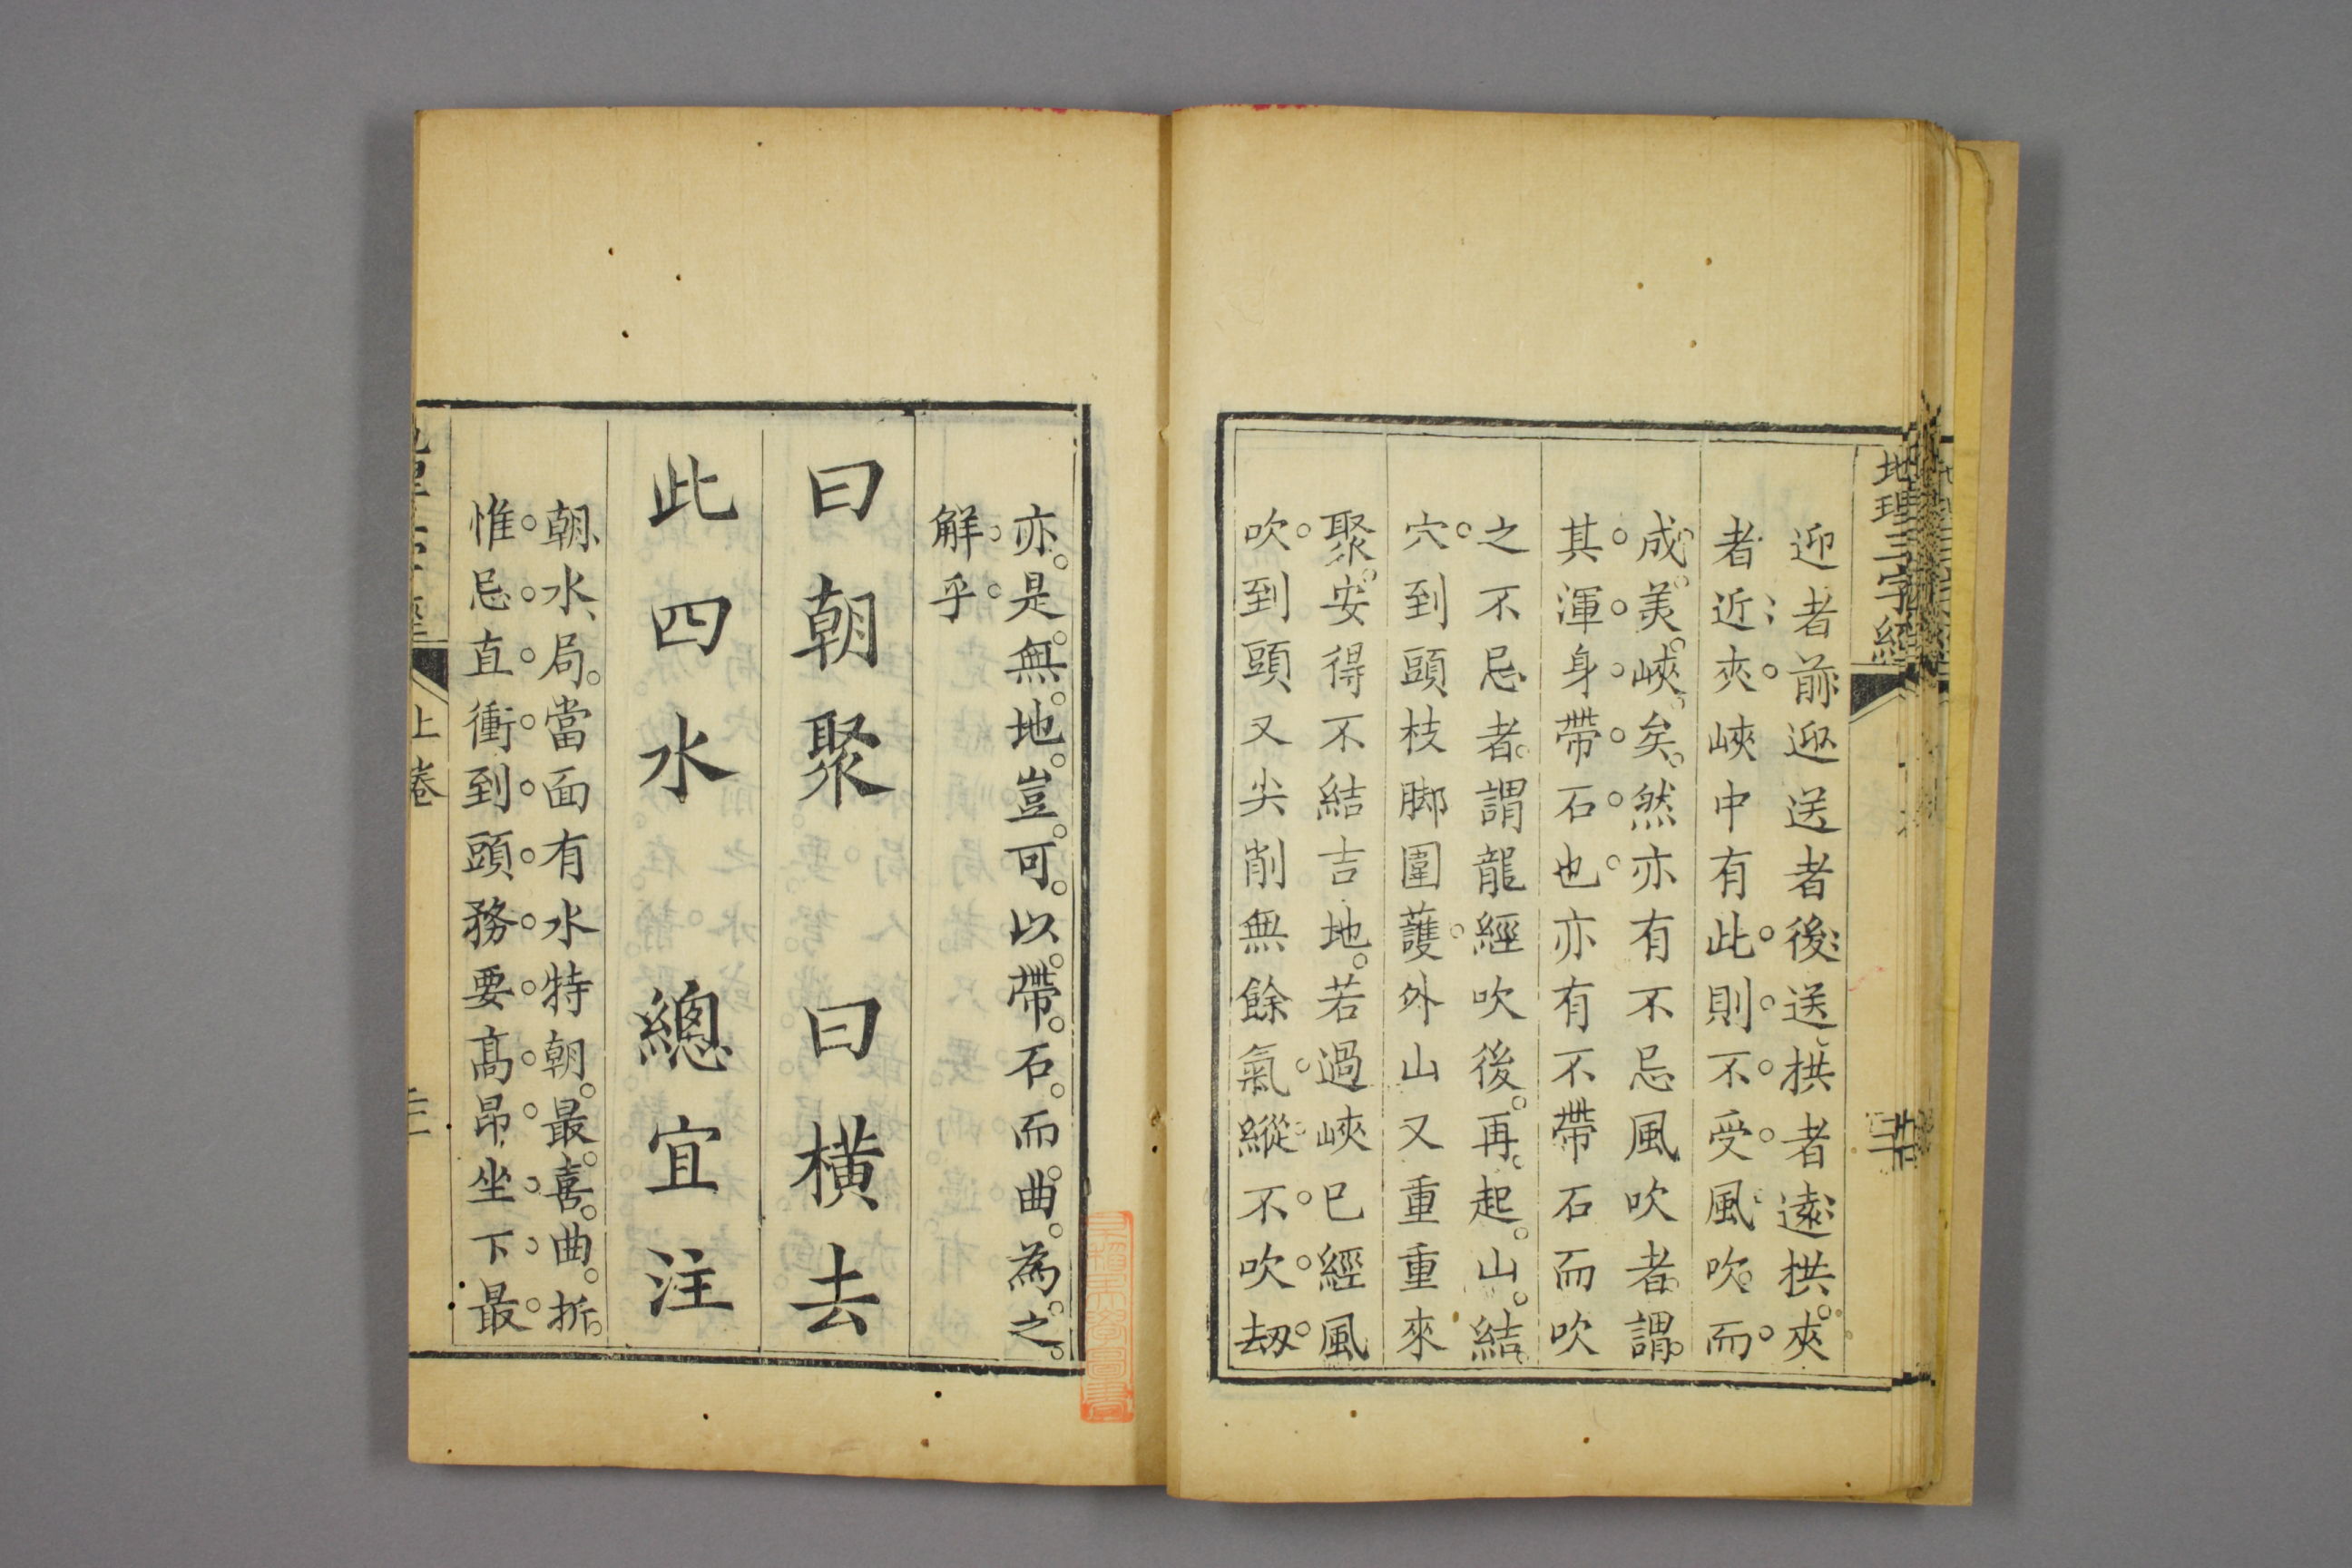 地理三字經
迎者前迎送者後送拱者遠拱夾
者近夾峽中有此則不受風吹而
成美峽矣然亦有不忌風吹者謂
其渾身帶石也亦有不帶石而吹
之不忌者謂龍經吹後再起山結
穴到頭枝脚圍護外山又重重來
聚安得不結吉地若過峽已經風
吹到頭又尖削無餘氣縱不吹刼
亦是無地豈可以帶石而曲為之
解乎
曰朝聚 曰橫去
此四水 總宜注
朝水局當面有水特朝最喜曲折
惟忌直衝到頭務要髙昂坐下最
上卷